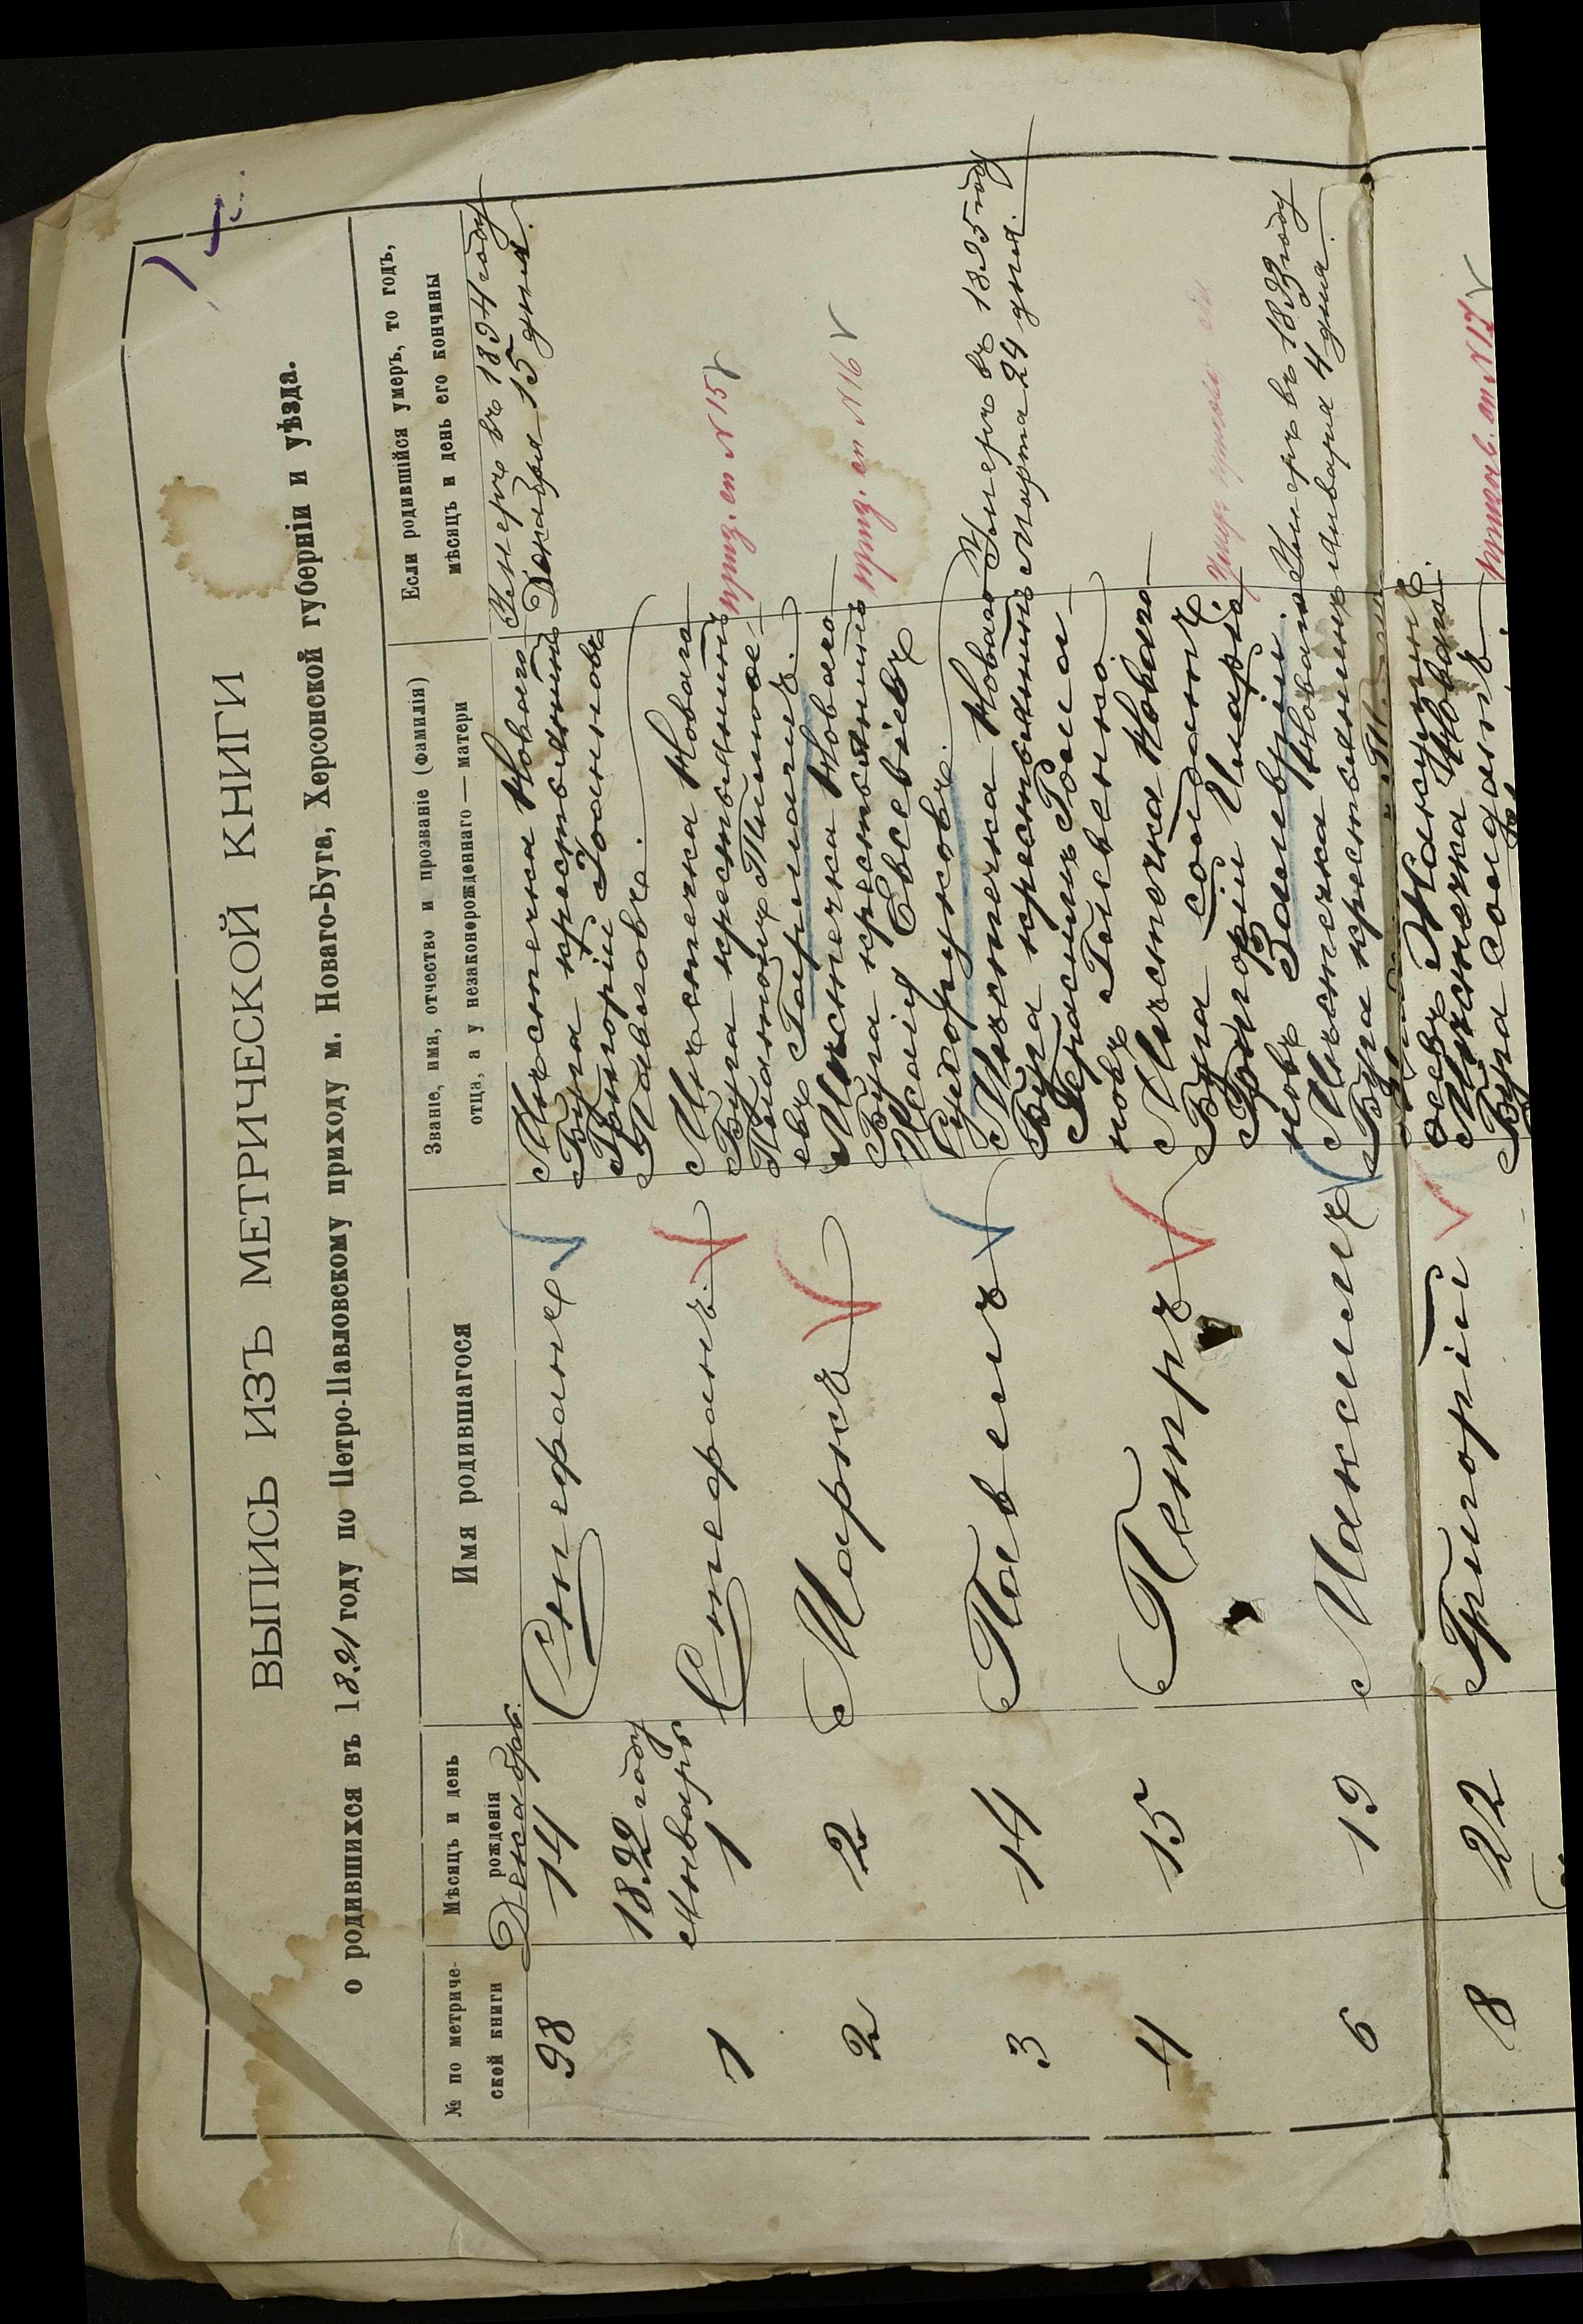 ВЫПИСЬ ИЗЪ МЕТРИЧЕСКОЙ КНИГИ
о родившихся въ 1891 году по Петро-Павловскому приходу м. Новаго-Буга, Херсонской губерніи и уѣзда.
№ по метриче-
ской книги
Мѣсяцъ и день
рожденія
Имя родившагося
Званіе, имя, отчество и прозваніе (фамилія)
отца, а у незаконорожденнаго — матери
Если родившійся умеръ, то годъ,
мѣсяцъ и день его кончины
Декабрь.
98
14
Стефанъ
Мѣстечка Новаго
Буга крестьянинъ
Григорій Іоанновъ
Умеръ въ 1894 году
Декабря 15 дня.
1892 году
Январь
1
1
Стефанъ.
Мѣстечка Новаго
Буга крестьянинъ
Платонъ Тимоѳе-
евъ
приз. сп N 15
2
2
Маркъ
Мѣстечка Новаго
Буга крестьянинъ
Исаія Евсевіевъ
Сидоруковъ.
приз. сп N 16
3
14
Павелъ
Мѣстечка Новаго
Буга крестьянинъ
Герасимъ
Умеръ въ 1895 году
Марта 24 дня.
4
15
Петръ
Мѣстечка Новаго
Буга солдатъ
Григорій
новъ
Умеръ
6
19
Максимъ
Мѣстечка Новаго
Буга крестьянинъ
Умеръ въ 1893 году
Января 4 дня.
8
22
Григорій
Мѣстечка Новаго
Буга солдатъ
N 17